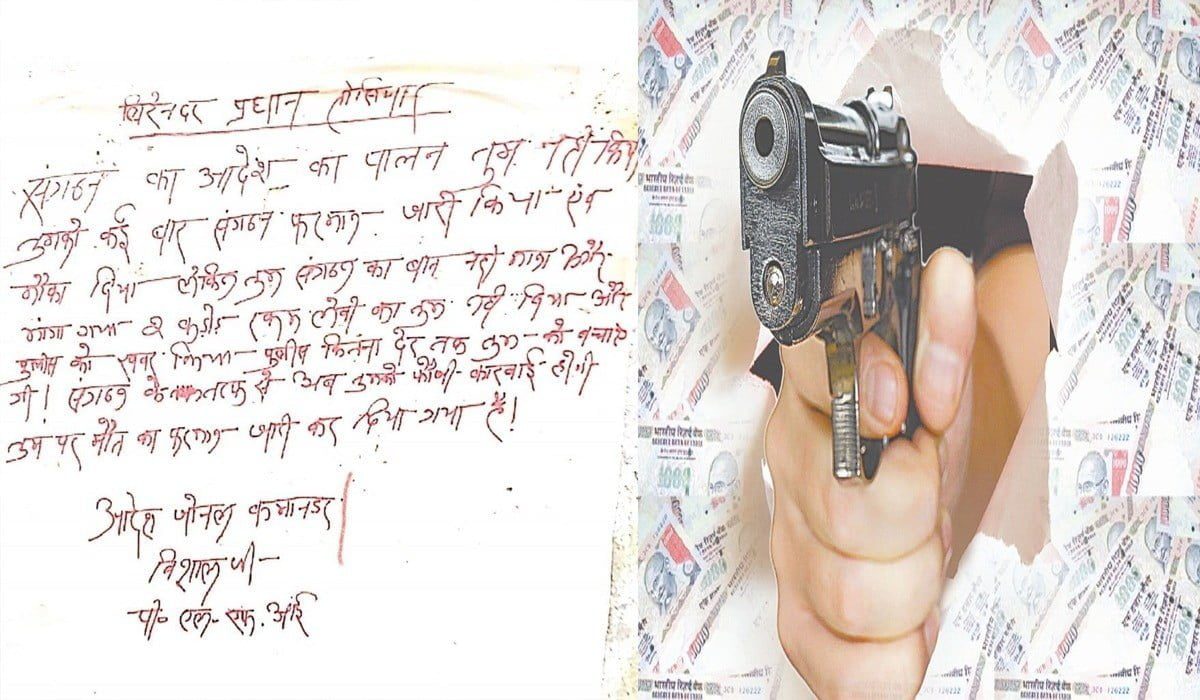 विरेनदर प्रधान तोसिया
संगठन का आदेश का पालन तुम नही किय
तुमको कई बार संगठन फरमान जारी किया एंव
मौका दिया लेकिन तुम संगठन का बात नही माना
मांगा गया 2 करोड़ रकम लेवी का तुम नही दिया और
पुलिस को खबर किया पुलीस कितना देर तक तुम को बचाए
गी! संगठन के तरफ से अब तुमको फौजी कारवाई होगी
तुम पर मौत का फरमान जारी कर दिया गया है!
आदेश जोनल कमानडर
विशाल जी
पी॰ एल॰ एफ. आई
भारतीय रिज़र्व बैंक
RESERVE BANK OF INDIA
1000